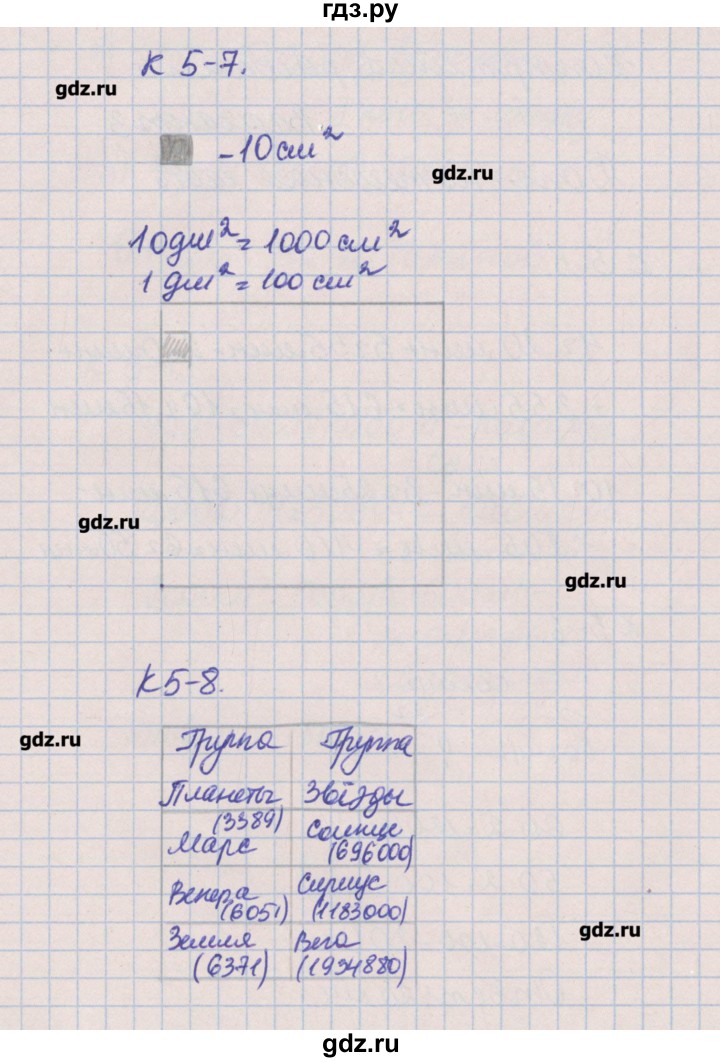 гдз.ру
К 5-7.
gdz.ru
- 10 см²
gdz.ru
10 дм² = 1000 см²
1 дм² = 100 см²
gdz.ru
gdz.ru
К 5-8.
gdz.ru
Группа Группа
Планеты Звёзды
Марс (3389) Солнце (696000)
Венера (6051) Сириус (1183000)
gdz.ru
Земля (6371) Вега (1934880)
гдз.ру